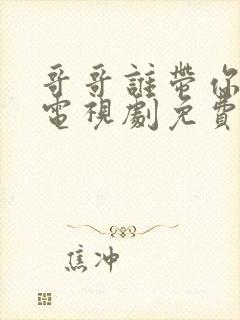 哥哥誰帶你
電視劇免費
焦冲